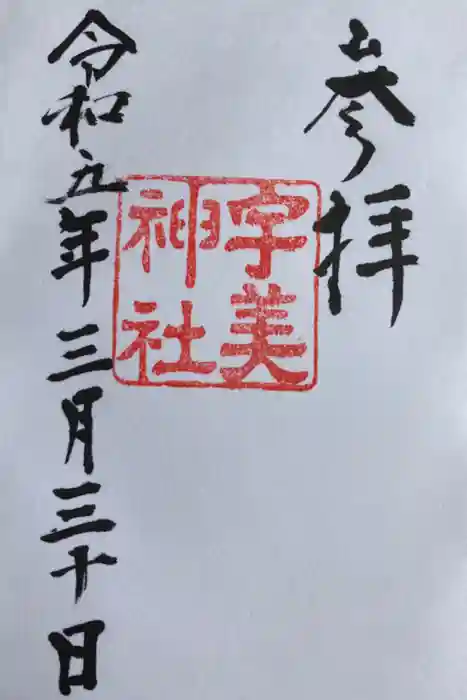 参拝
宇美
神社
令和五年三月三十日